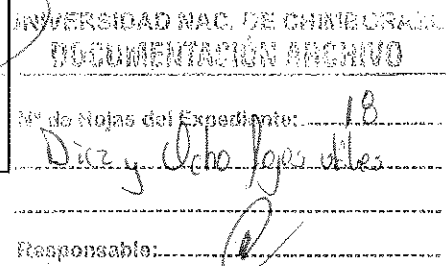 UNIVERSIDAD NAC. DE CHIMBORAZO
DOCUMENTACIÓN ARCHIVO
Nº de Hojas del Expediente: 18
Diez y Ocho fojas utiles
Responsable: